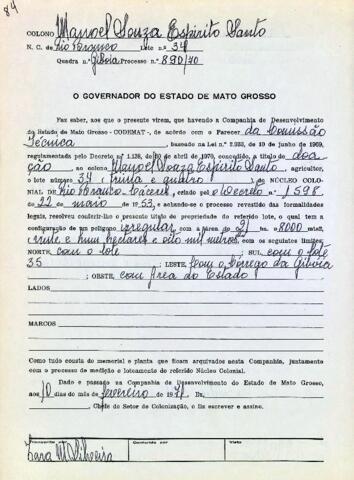 84
COLONO Manoel Souza Espírito Santo
N. C. de Rio Branco Lote n.º 34
Quadra n.º Giboia Processo n.º 890/70
O GOVERNADOR DO ESTADO DE MATO GROSSO
Faz saber, aos que o presente virem, que havendo a Companhia de Desenvolvimento
do Estado de Mato Grosso - CODEMAT -, de acordo com o Parecer da Comissão
Técnica, baseado na Lei n.º 2.933, de 19 de junho de 1969
regulamentada pelo Decreto n.º 1.138, de 20 de abril de 1970, concedido, a título de doa
ção ao colono Manoel Souza Espírito Santo, agricultor,
o lote número 34 (trinta e quatro) do NÚCLEO COLO-
NIAL DE Rio Branco-Cáceres, criado pelo Decreto n.º 1598
de 22 de maio de 1953, e achando-se o processo revestido das formalidades
legais, resolveu conferir-lhe o presente título de propriedade do referido lote, o qual tem a
configuração de um polígono irregular com a área de 21 ha. 8000 mts2.
(vinte e hum hectares e oito mil metros), com os seguintes limites:
NORTE, com o lote ; SUL, com o lote
35 ; LESTE, com o Córrego da Giboia
; OESTE, com Área do Estado
LADOS
MARCOS
Como tudo consta do memorial e planta que ficam arquivados nesta Companhia, juntamente
com o processo de medição e loteamento do referido Núcleo Colonial.
Dado e passado na Companhia de Desenvolvimento do Estado de Mato Grosso,
aos 10 dias do mês de fevereiro de 1971 Eu,
Chefe do Setor de Colonização, o fiz escrever e assino.
Transcrito Conferido por Visto